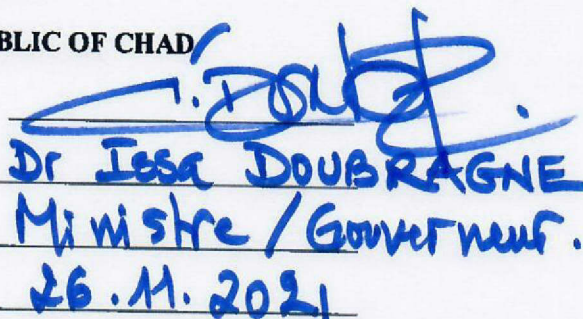 BLIC OF CHAD
Dr Issa DOUBRAGNE
Ministre / Gouverneur.
26.11.2021